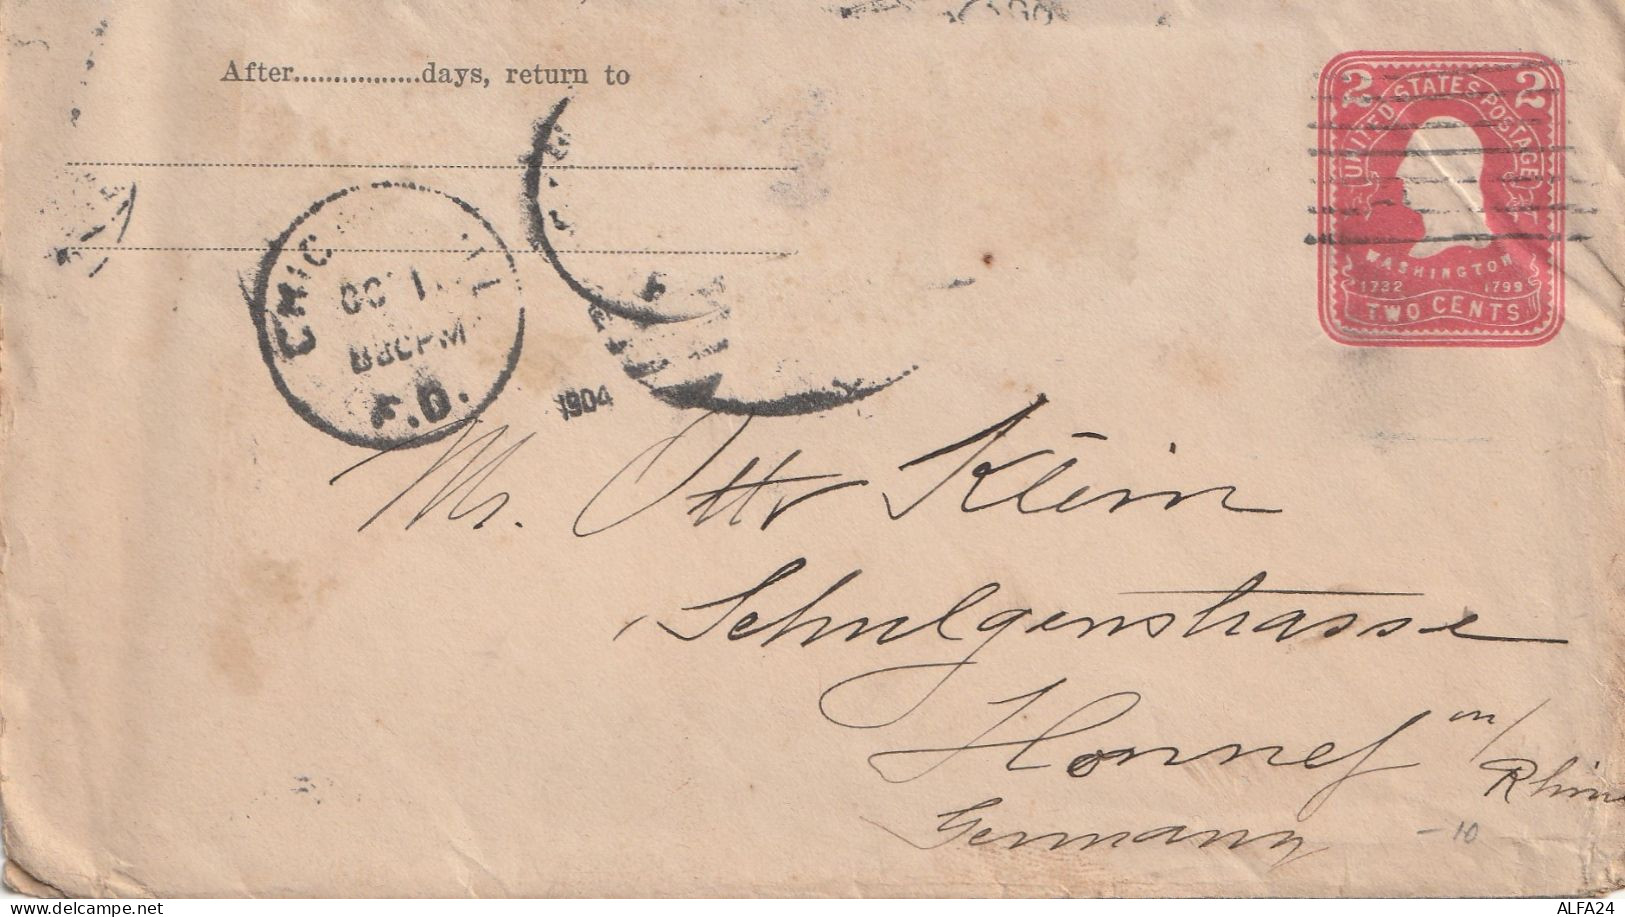 After...............days, return to
2 2
UNITED STATES POSTAGE
WASHINGTON
1732 1799
TWO CENTS
CHIC
OCT 1
PM
F.D.
1904
Mr. Otto Klein
Schulgenstrasse
Honnef
Germany
-10
delcampe.net
ALFA24